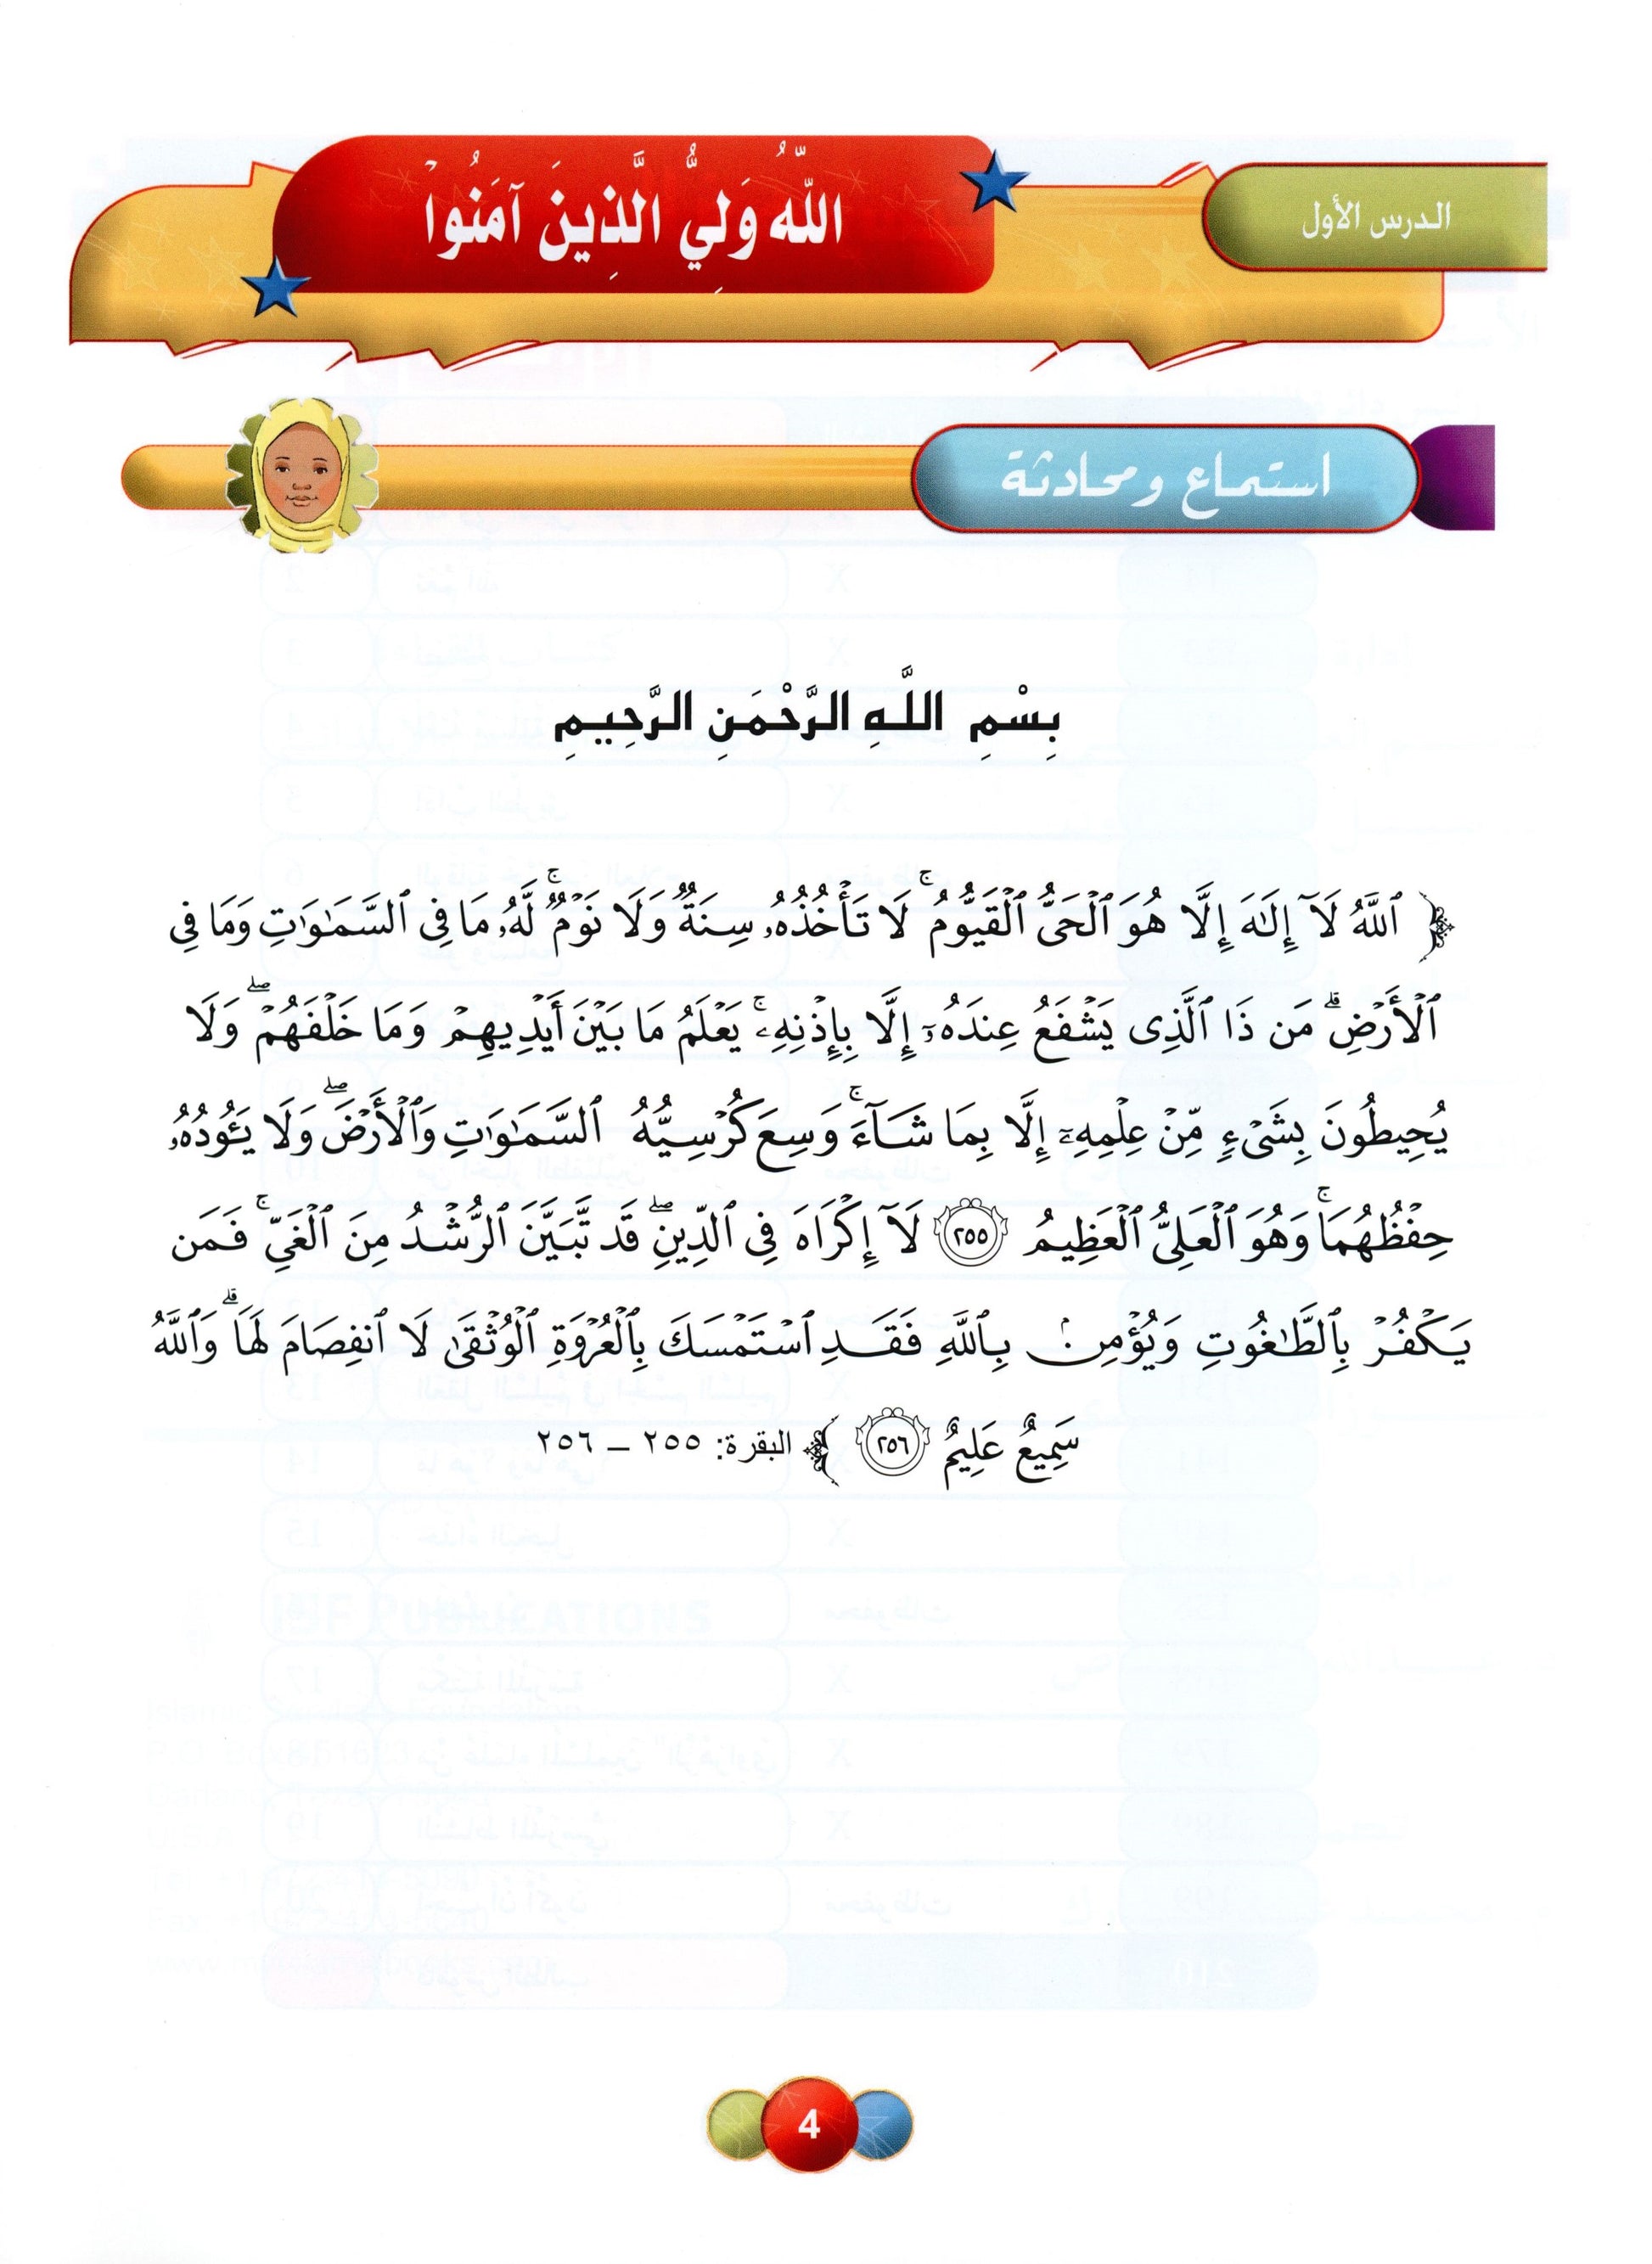 الدرس الأول
اللّٰهُ وَلِيُّ الَّذِينَ آمَنُوا
استماع ومحادثة
بِسْمِ اللَّهِ الرَّحْمَنِ الرَّحِيمِ
﴿ ٱللَّهُ لَآ إِلَٰهَ إِلَّا هُوَ ٱلْحَىُّ ٱلْقَيُّومُ ۚ لَا تَأْخُذُهُۥ سِنَةٌ وَلَا نَوْمٌ ۚ لَّهُۥ مَا فِى ٱلسَّمَٰوَٰتِ وَمَا فِى
ٱلْأَرْضِ ۗ مَن ذَا ٱلَّذِى يَشْفَعُ عِندَهُۥٓ إِلَّا بِإِذْنِهِۦ ۚ يَعْلَمُ مَا بَيْنَ أَيْدِيهِمْ وَمَا خَلْفَهُمْ ۖ وَلَا
يُحِيطُونَ بِشَىْءٍ مِّنْ عِلْمِهِۦٓ إِلَّا بِمَا شَآءَ ۚ وَسِعَ كُرْسِيُّهُ ٱلسَّمَٰوَٰتِ وَٱلْأَرْضَ ۖ وَلَا يَـُٔودُهُۥ
حِفْظُهُمَا ۚ وَهُوَ ٱلْعَلِىُّ ٱلْعَظِيمُ ٢٥٥ لَآ إِكْرَاهَ فِى ٱلدِّينِ ۖ قَد تَّبَيَّنَ ٱلرُّشْدُ مِنَ ٱلْغَىِّ ۚ فَمَن
يَكْفُرْ بِٱلطَّٰغُوتِ وَيُؤْمِنۢ بِٱللَّهِ فَقَدِ ٱسْتَمْسَكَ بِٱلْعُرْوَةِ ٱلْوُثْقَىٰ لَا ٱنفِصَامَ لَهَا ۗ وَٱللَّهُ
سَمِيعٌ عَلِيمٌ ٢٥٦ ﴾ البقرة: ٢٥٥ – ٢٥٦
4